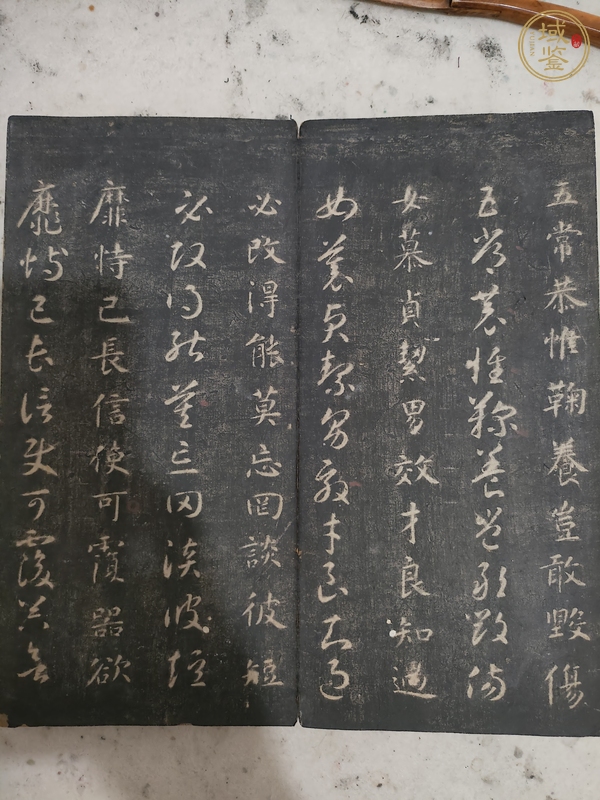 域鉴
五常恭惟鞠養豈敢毀傷
五常恭惟鞠養豈敢毀傷
女慕貞絜男效才良知過
女慕貞絜男效才良知過
必改得能莫忘罔談彼短
必改得能莫忘罔談彼短
靡恃己長信使可覆器欲
靡恃己長信使可覆器欲